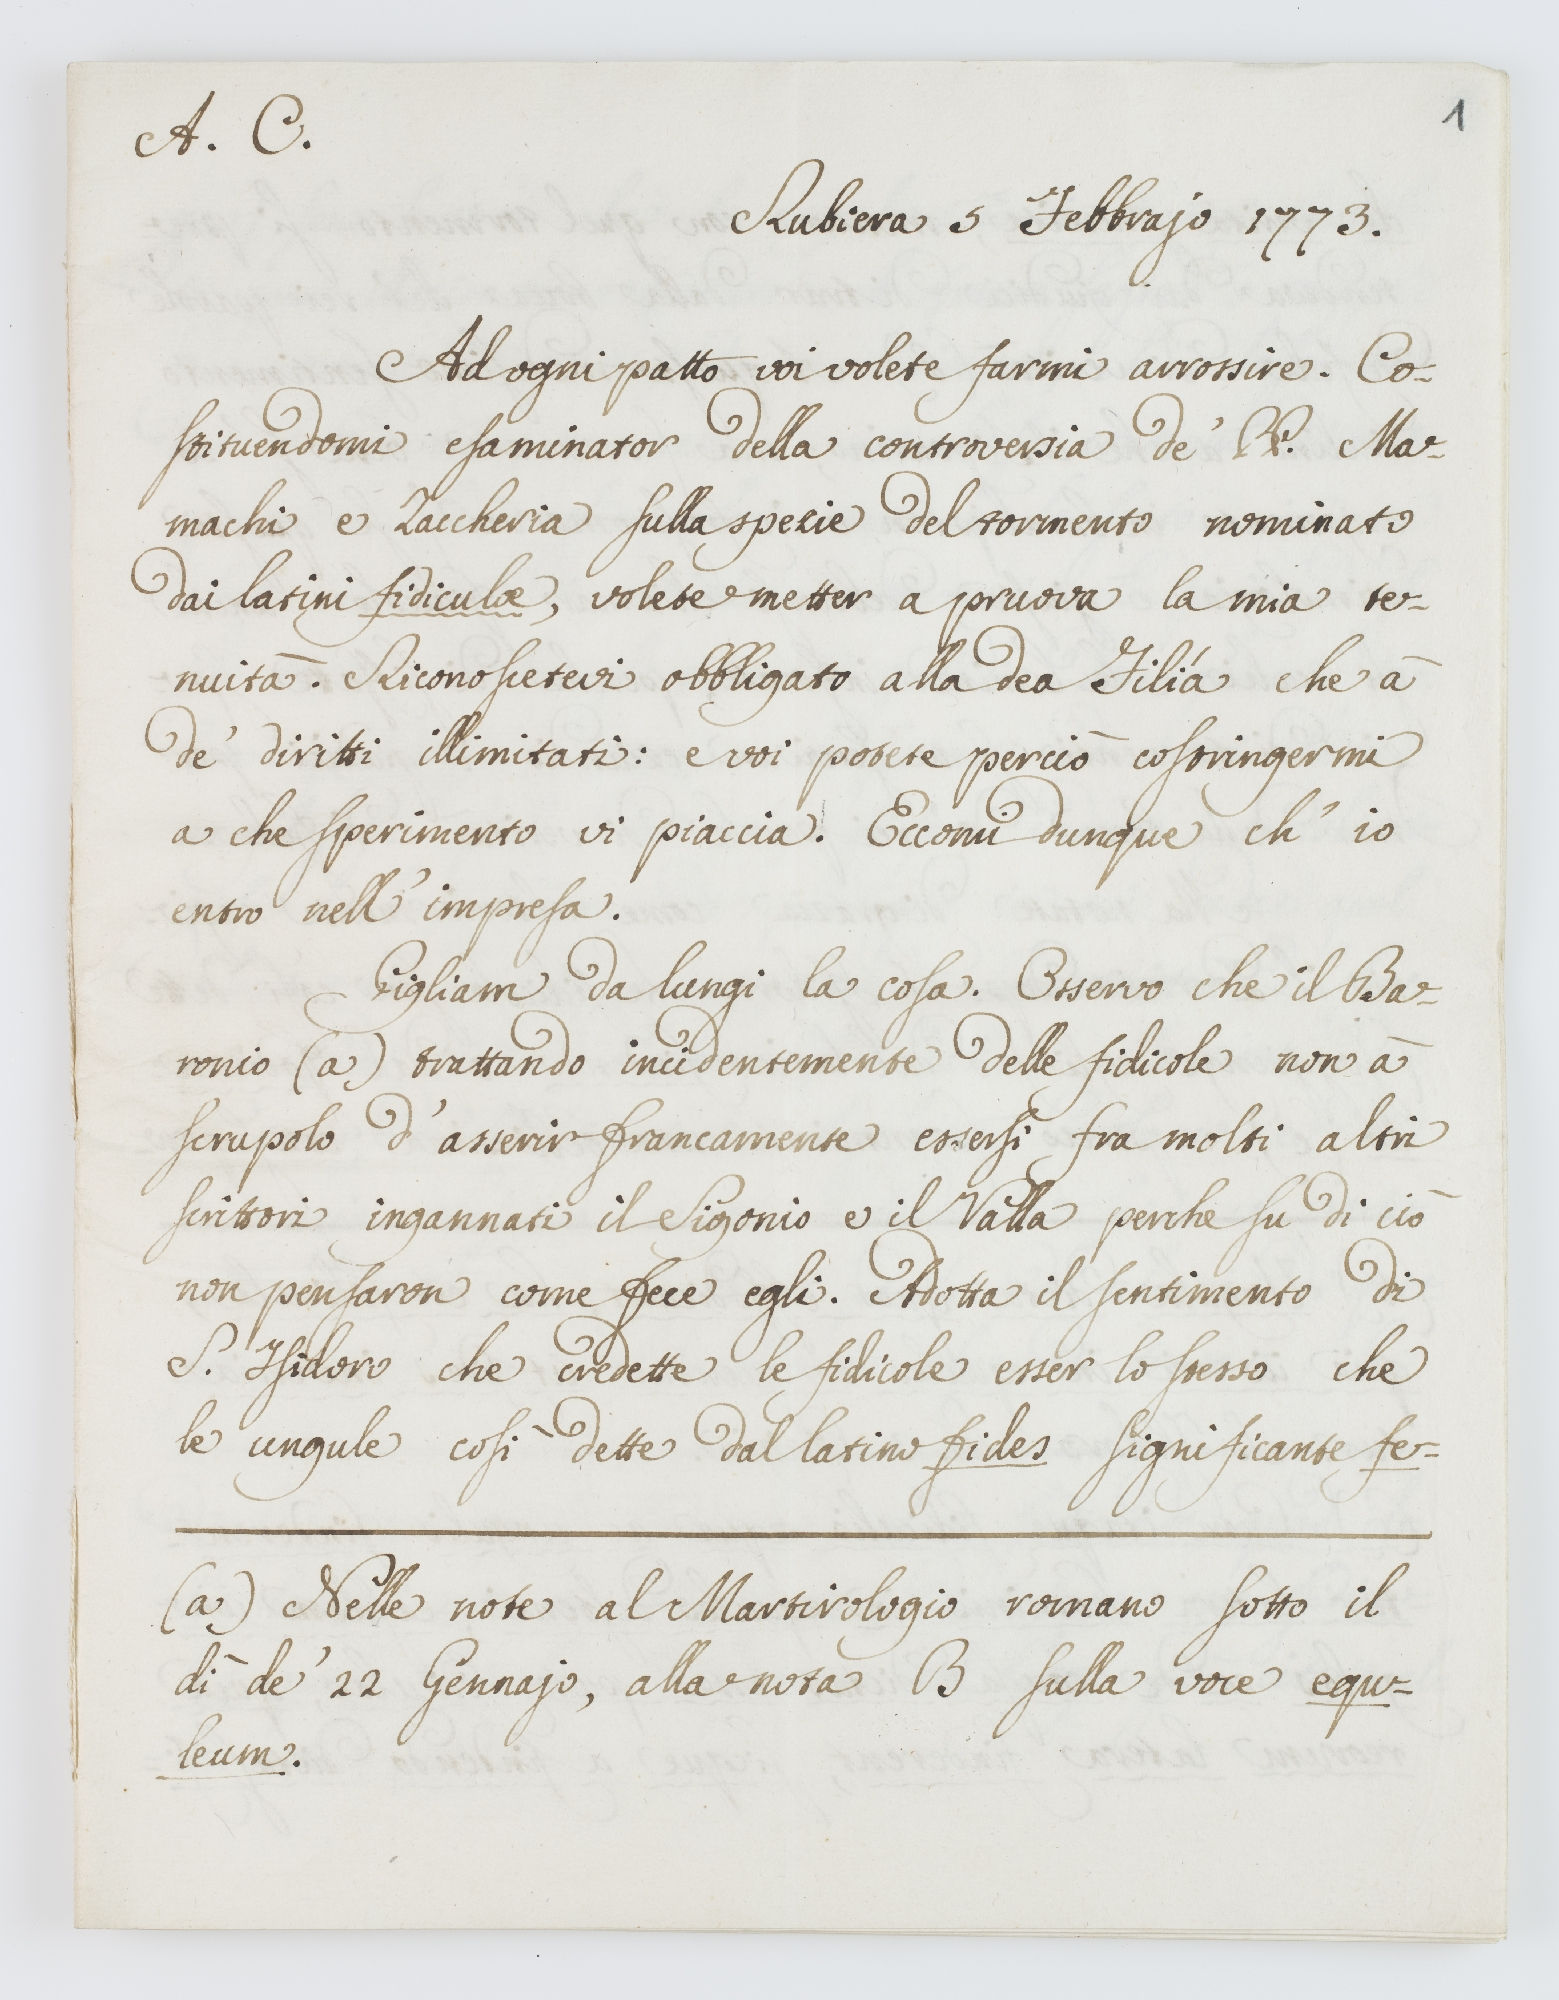 A. C.
1
Rubiera 5 Febbrajo 1773.
Ad ogni patto voi volete farmi arrossire. Co-
stituendomi esaminator della controversia de' PP. Ma-
machi e Zaccheria sulla spezie del tormento nominato
dai latini fidiculæ, volete metter a pruova la mia te-
nuità. Riconoscetevi obbligato alla dea Filía che à
de' diritti illimitati: e voi potete perciò costringermi
a che sperimento vi piaccia. Eccomi dunque ch' io
entro nell' impresa.
Pigliam da lungi la cosa. Osservo che il Ba-
ronio (a) trattando incidentemente delle fidicole non à
scrupolo d' asserir francamente essersi fra molti altri
scrittori ingannati il Sigonio e il Valla perche su di ciò
non pensaron come fece egli. Adotta il sentimento di
S. Isidoro che credette le fidicole esser lo stesso che
le ungule così dette dal latino fides significante fe-
(a) Nelle note al Martirologio romano sotto il
dì de' 22 Gennajo, alla nota B sulla voce equ-
leum.